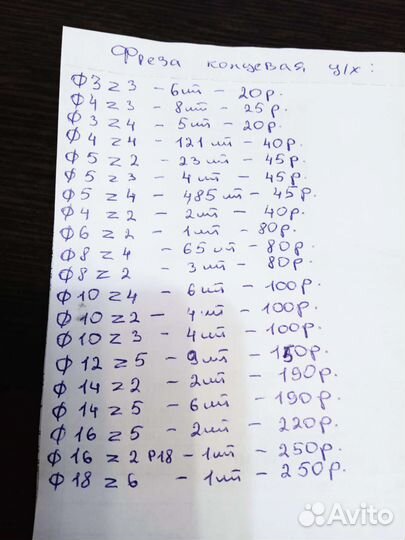 Фреза концевая ц/х:
Ф3 z 3 - 6шт - 20р.
Ф4 z 3 - 8шт - 25р.
Ф3 z 4 - 5шт - 20р.
Ф4 z 4 - 121шт - 40р.
Ф5 z 2 - 23шт - 45р.
Ф5 z 3 - 4шт - 45р.
Ф5 z 4 - 485шт - 45р.
Ф4 z 2 - 2шт - 40р.
Ф6 z 2 - 1шт - 80р.
Ф8 z 4 - 65шт - 80р.
Ф8 z 2 - 3шт - 80р.
Ф10 z 4 - 6шт - 100р.
Ф10 z 2 - 4шт - 100р.
Ф10 z 3 - 4шт - 100р.
Ф12 z 5 - 9шт - 150р.
Ф14 z 2 - 2шт - 190р.
Ф14 z 5 - 6шт - 190р.
Ф16 z 5 - 2шт - 220р.
Ф16 z 2 Р18 - 1шт - 250р.
Ф18 z 6 - 1шт - 250р.
Avito